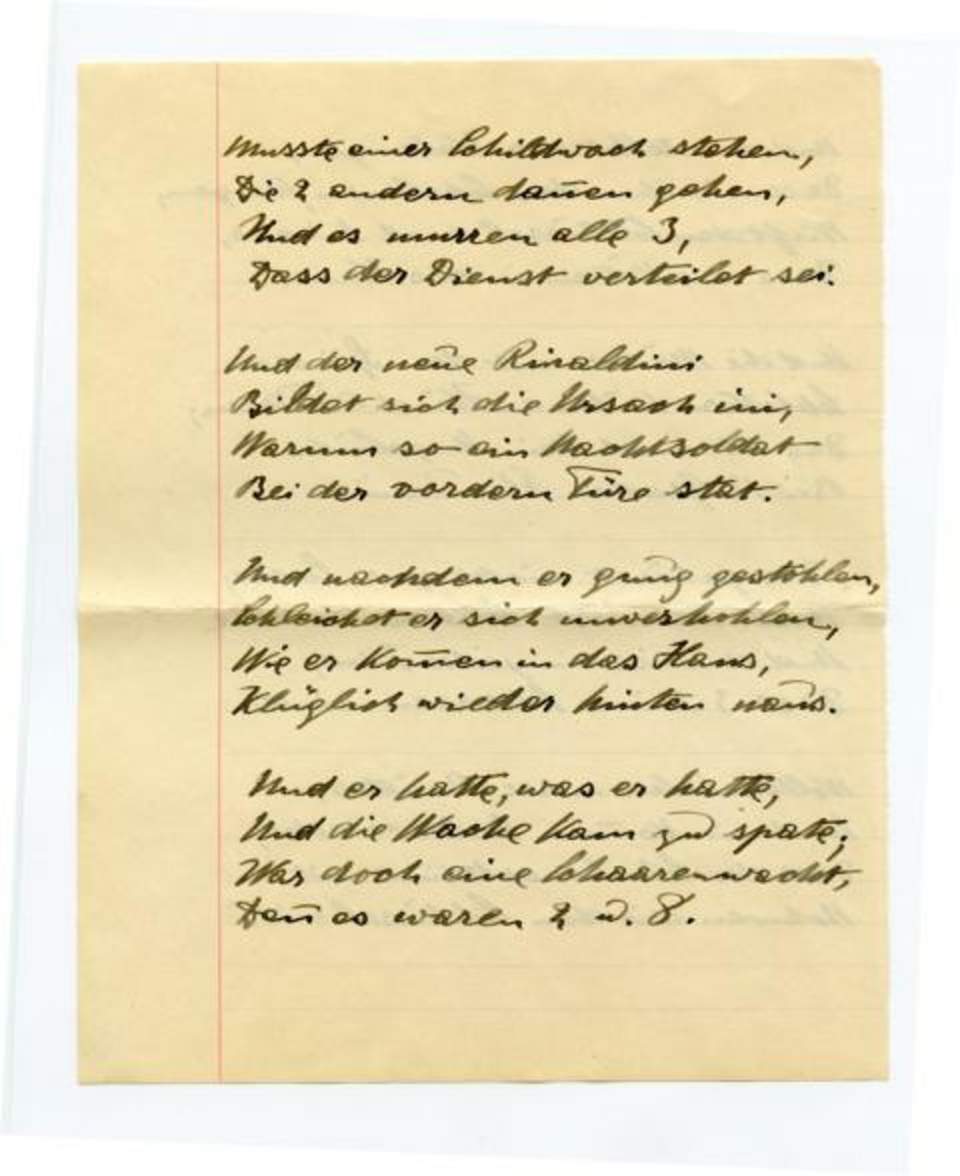 Musste einer Schildwach stehen,
Die 2 andern dañen gehen,
Und es murren alle 3,
Dass der Dienst verteilet sei.
Und der neue Rinaldini
Bildet sich die Ursach ini,
Warum so ein Nachtsoldat
Bei der vordern Türe stat.
Und nachdem er gnug gestohlen,
Schleichet er sich unverhohlen,
Wie er kom̄en in das Haus,
Klüglich wieder hinten naus.
Und er hatte, was er hatte,
Und die Wache kam zu spate;
War doch eine Schaarenwacht,
Dañ es waren 2 u. 8.